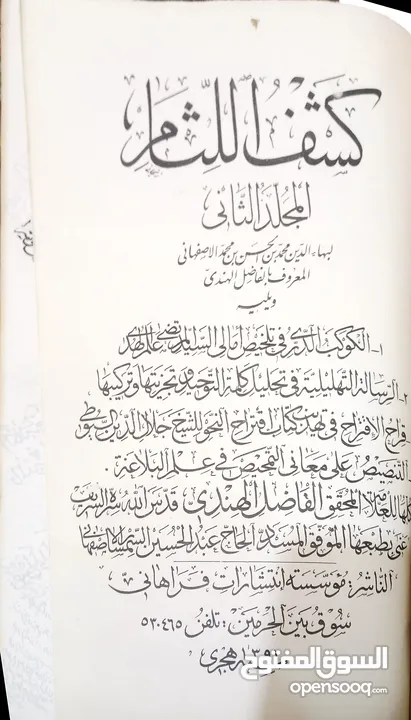 كشف اللثام
المجلد الثاني
لبهاء الدين محمد بن الحسن بن محمد الاصفهاني
المعروف بالفاضل الهندي
ويليه
١- الكوكب الدري في تلخيص أمالي السيد المرتضى علم الهدى
٢- الرسالة التهليلية في تحليل كلمة التوحيد وتجزيتها وتركيبها
قراح الاقتراح في تهذيب كتاب اقتراح النحو للشيخ جلال الدين السيوطي
التنصيص على معاني التمحيص في علم البلاغة
كلها للعلامة المحقق الفاضل الهندي قدس الله سره الشريف
عنى بطبعها الموفق المسدد الحاج عبد الحسين السمسار الاصفهاني
الناشر: مؤسسه انتشارات فراهاني
سوق بين الحرمين: تلفن ٥٣٠٤٦٥
هجري
السوق المفتوح
opensooq.com